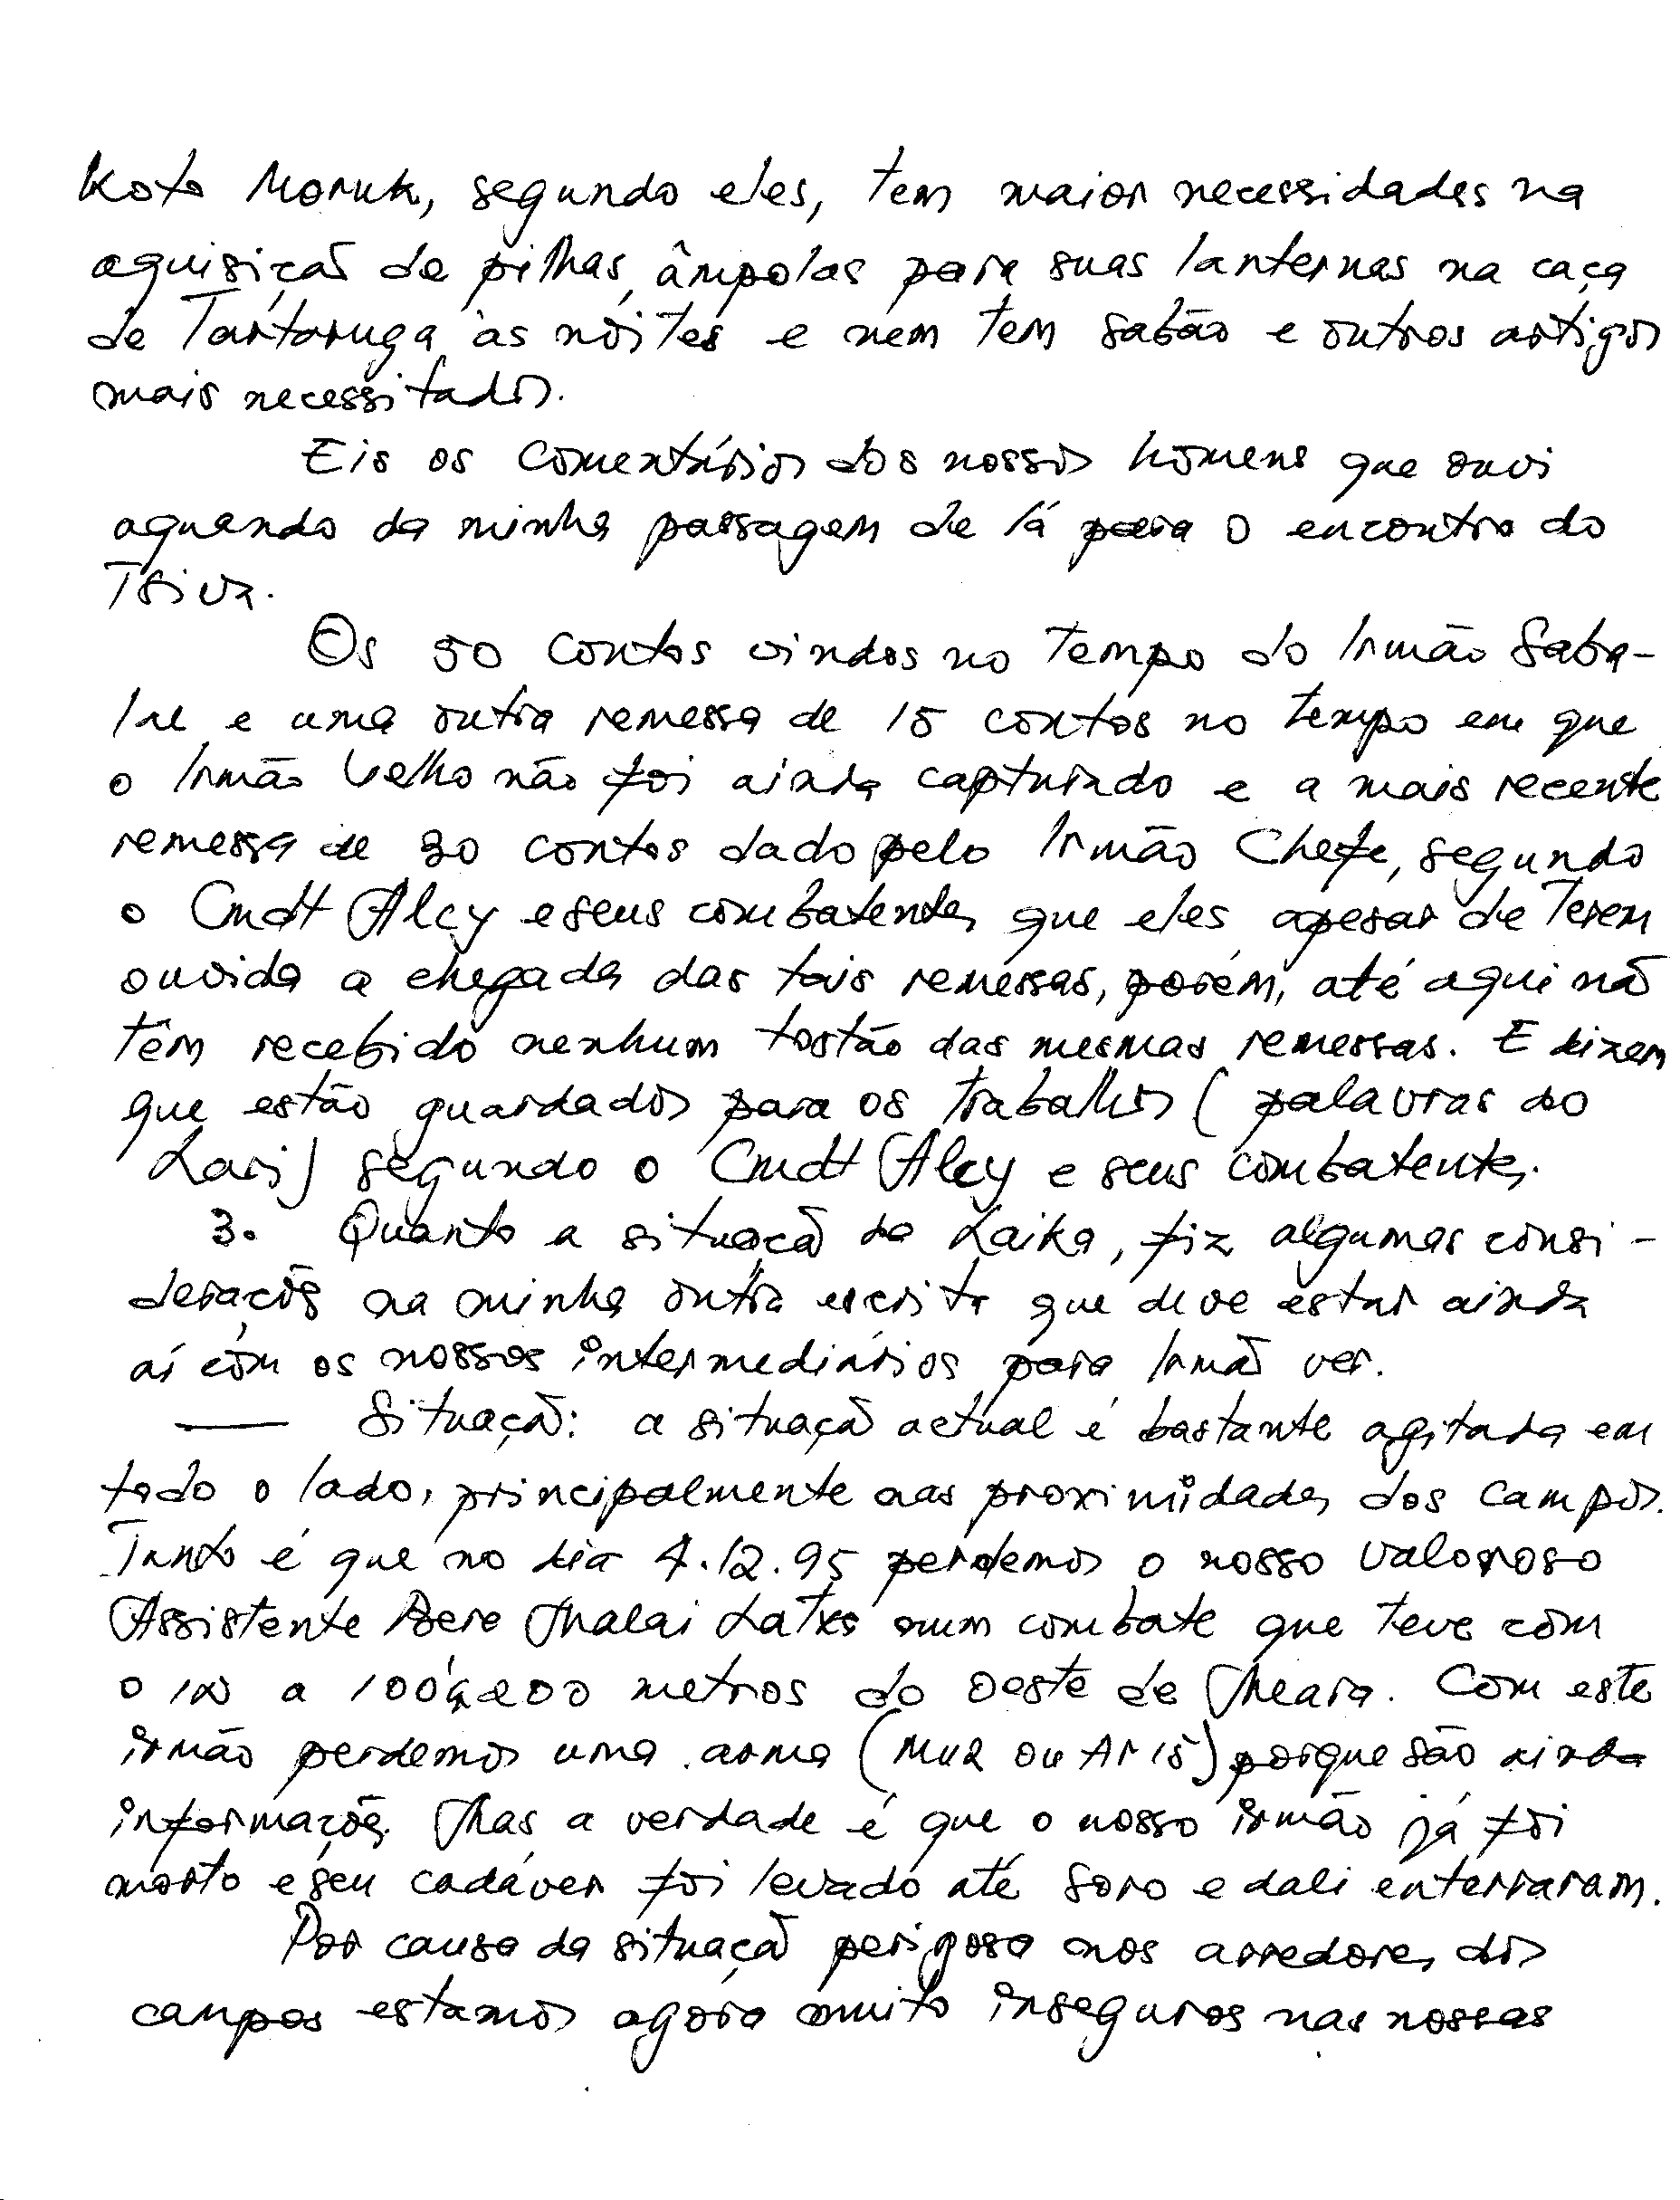 Koto Moruk, segundo eles, tem maior necessidades na
aquisiçaõ de pilhas, âmpolas para suas lanternas na caça
de Tartaruga às nôites e nem tem sabão e outros artigos
mais necessitados.
Eis os comentários dos nossos homens que ouvi
aquando da minha passagem de lá para o encontro do
Os 50 contos vindos no tempo do Irmão Saba-
lae e uma outra remessa de 15 contos no tempo em que
o Irmão Velho não foi ainda capturado e a mais recente
remessa de 30 contos dado pelo Irmão Chefe, segundo
o Cmdt Alcy e seus combatentes que eles apesar de terem
ouvida a chegada das tais remessas, porém, até aqui não
têm recebido nenhum tostão das mesmas remessas. E dizem
que estão guardados para os trabalhos (palavras do
Lari) segundo o Cmdt Alcy e seus combatentes.
3. Quanto a situação da Laika, fiz algumas consi-
derações na minha outra escrita que deve estar ainda
aí com os nossos intermediários para Irmão ver.
— Situação: a situação actual é bastante agitada em
todo o lado, principalmente nas proximidades dos campos.
Tanto é que no dia 4.12.95 perdemos o nosso valoroso
Assistente Bere Malai Latxo num combate que teve com
o in a 100 à 200 metros do oeste de Meara. Com este
irmão perdemos uma arma (M42 ou AR15) porque são ainda
informações. Mas a verdade é que o nosso irmão já foi
morto e seu cadáver foi levado até Soro e dali enterraram.
Por causa da situação perigosa nos arredores dos
campos estamos agora muito inseguros nas nossas